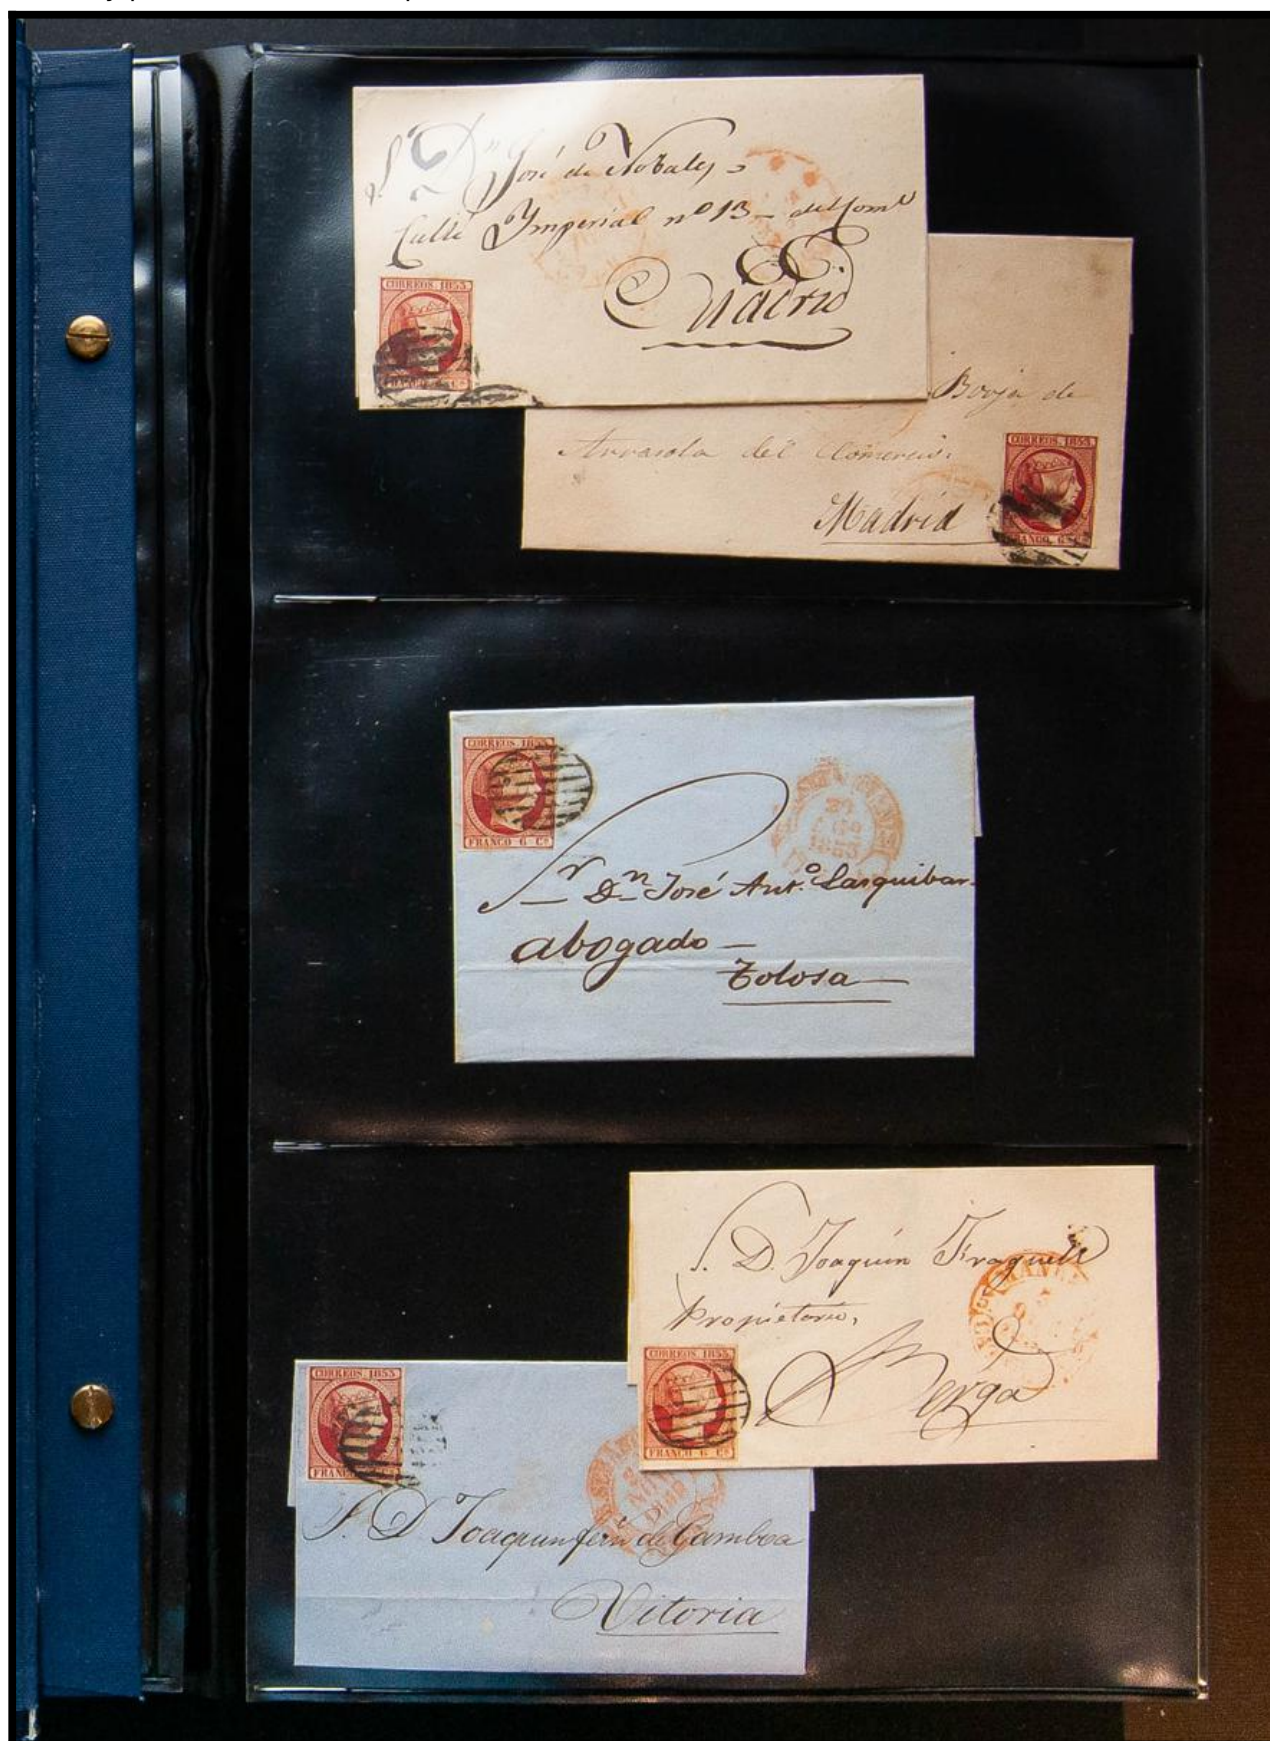 S. Dn José de Nobales
Calle Imperial nº 13 - del Comº
Madrid
CORREOS. 1853.
FRANCO 6 Cs
Borja de
Arrasola del Comercio.
Madrid
CORREOS. 1853.
FRANCO. 6 Cs
CORREOS 1853.
FRANCO 6 Cs
29
1853
Sr Dn José Antº Larquibar
abogado —
Tolosa
S. D. Joaquin Fraguell
Propietario,
Berga
CORREOS 1853.
FRANCO 6 Cs
CORREOS 1853.
FRANCO 6 Cs
S. D Joaquin fern de Gamboa
Vitoria